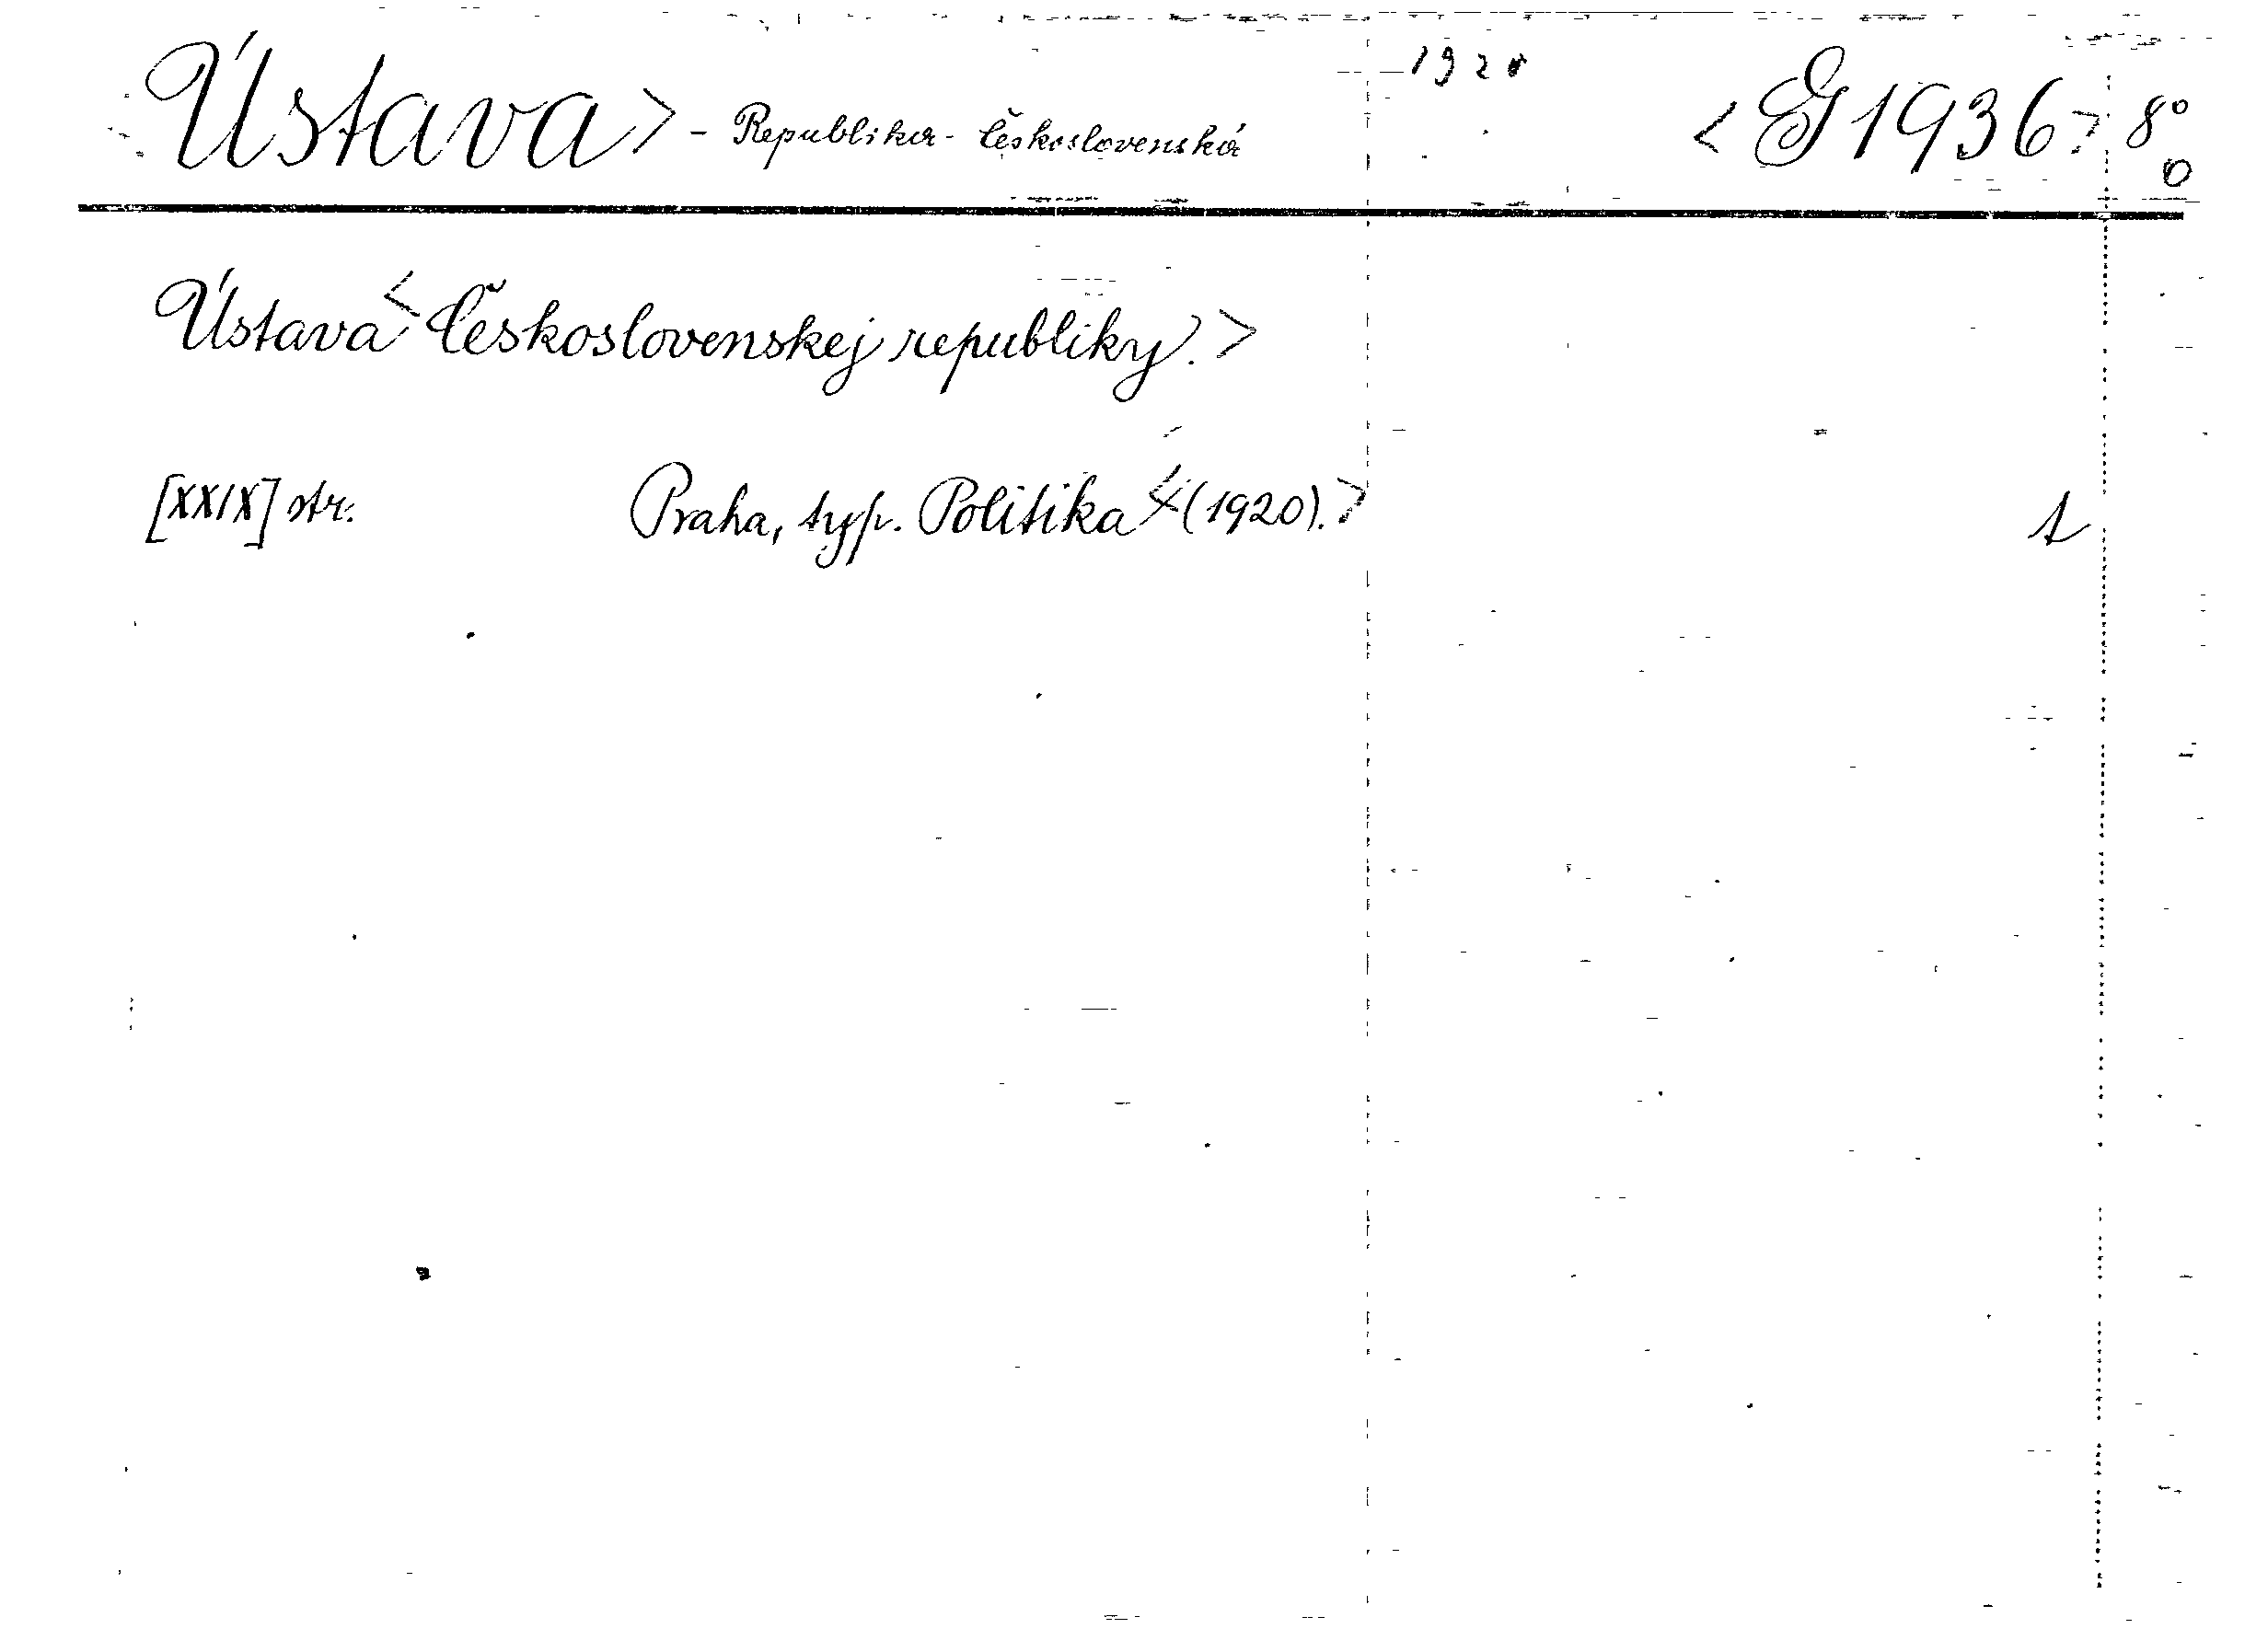 Ústava> - Republika - Československá 1920 <G 1936> 8°
0
Ústava <Československej republiky.>
[XXIX] str. Praha, typ. Politika <(1920).> 1